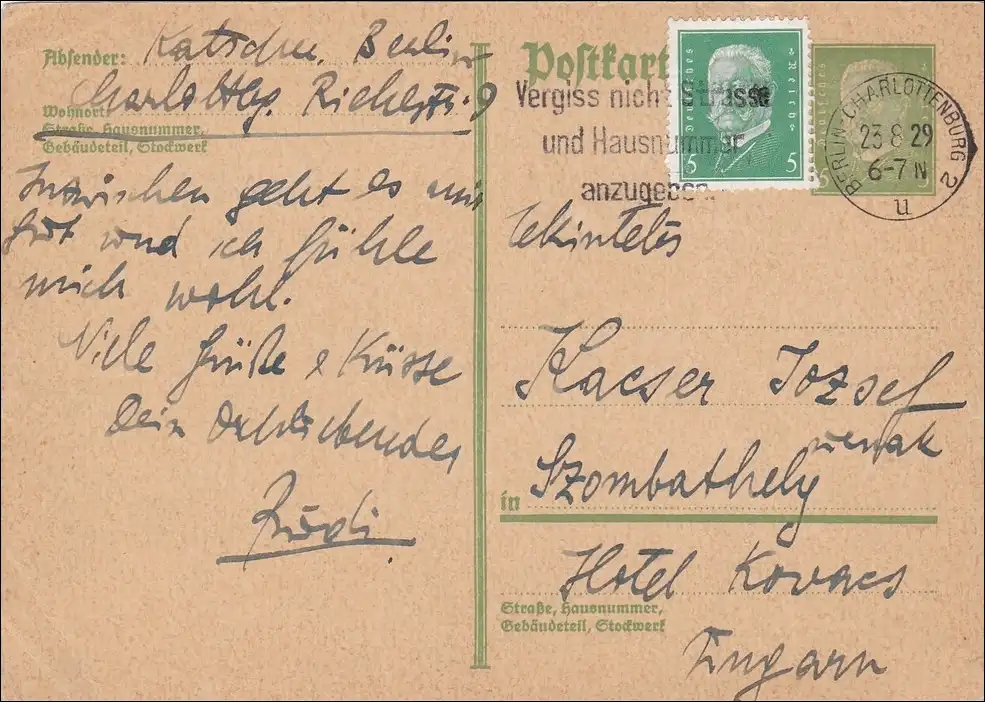 Absender: Katscher, Berlin
Charlottbg. Riehlstr. 9
Wohnort,
Straße, Hausnummer,
Gebäudeteil, Stockwerk
Inzwischen geht es mir
gut und ich fühle
mich wohl.
Viele Grüße & Küsse
Dein Dichliebender
Rudi
Postkart
Vergiss nicht Strasse
und Hausnummer
anzugeben
Deutsches Reich
5 5
5 5
BERLIN-CHARLOTTENBURG 2
23 8 29
6-7 N
u
Tekintetes
Kacser Jozsef
urnak
in Szombathely
Hotel Kovacs
Straße, Hausnummer,
Gebäudeteil, Stockwerk
Ungarn